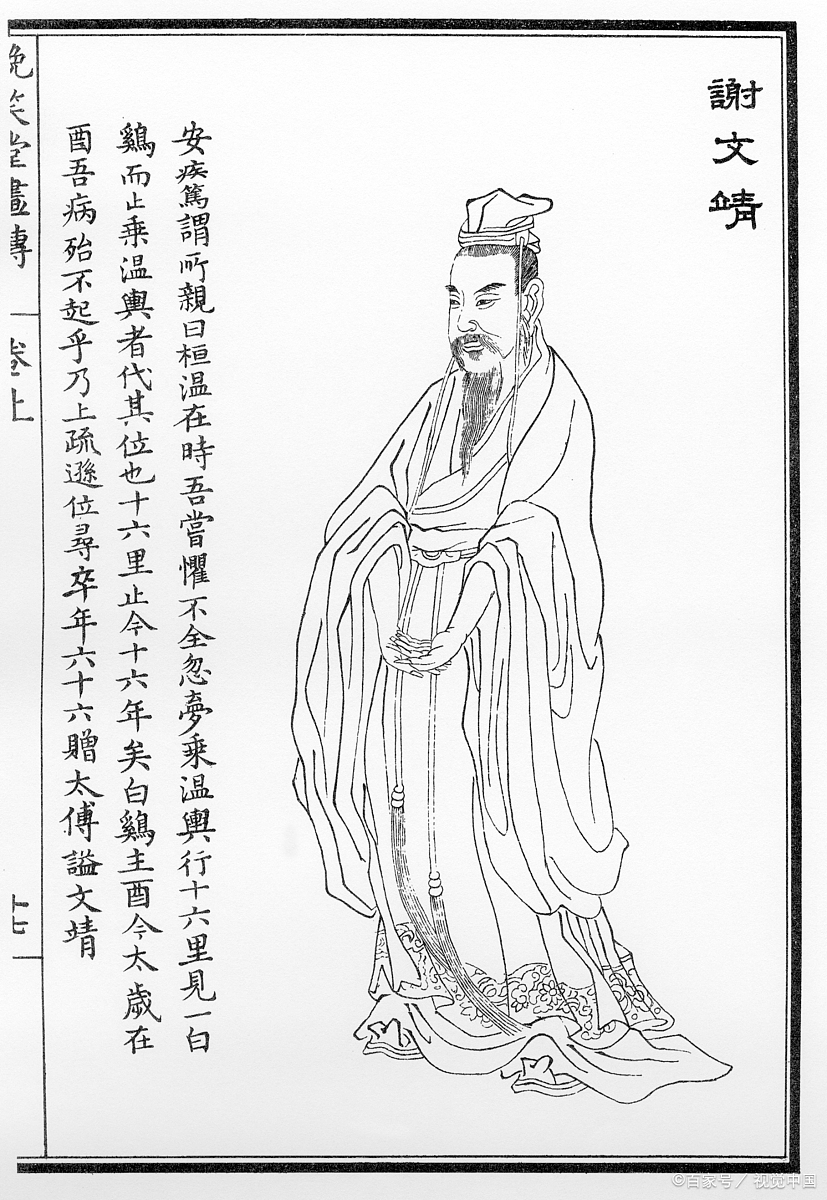 謝文靖
安疾篤謂所親曰桓温在時吾嘗懼不全忽夢乘温輿行十六里見一白
鷄而止乘温輿者代其位也十六里止今十六年矣白鷄主酉今太歲在
酉吾病殆不起乎乃上疏遜位尋卒年六十六贈太傅謚文靖
晚笑堂畫傳 卷上 十七
©百家号／视觉中国